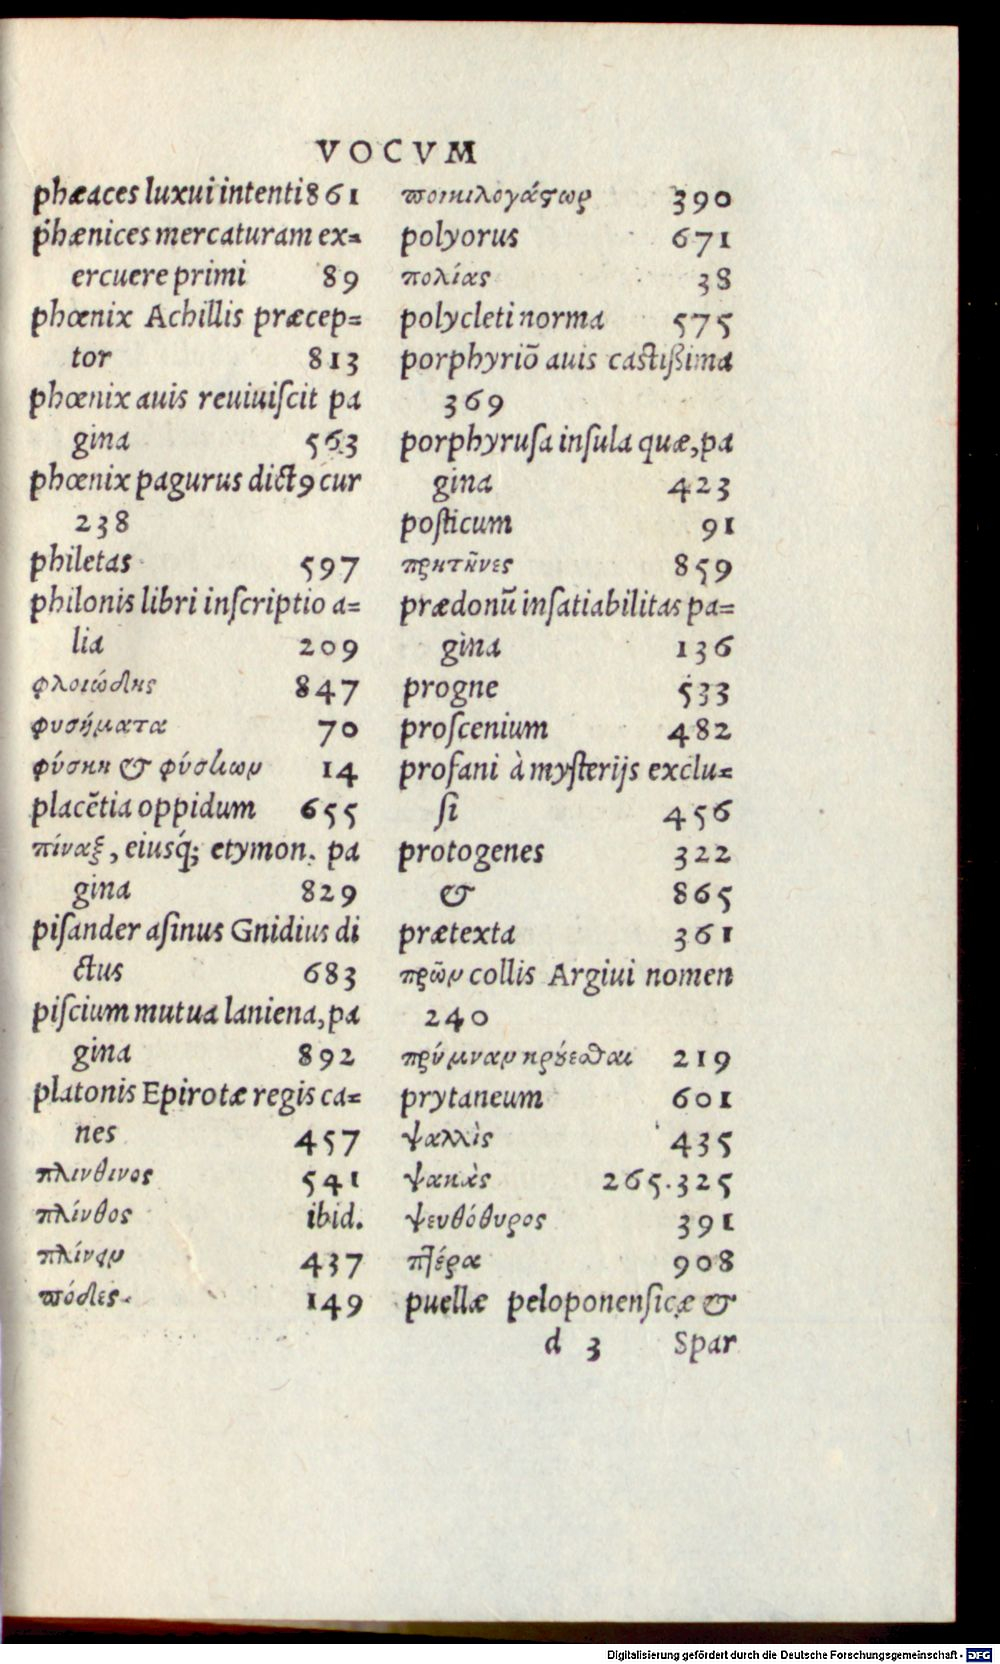 VOCVM
phæaces luxui intenti 861
phænices mercaturam ex=
ercuere primi 89
phœnix Achillis præcep=
tor 813
phœnix auis reuiuiſcit pa
gina 563
phœnix pagurus dictꝰ cur
238
philetas 597
philonis libri inſcriptio a=
lia 209
φλοιώδης 847
φυσήματα 70
φύσκη & φύσκων 14
placẽtia oppidum 655
πίναξ, eiusq́; etymon. pa
gina 829
piſander aſinus Gnidius di
ctus 683
piſcium mutua laniena, pa
gina 892
platonis Epirotæ regis ca=
nes 457
πλινθινος 541
πλίνθος ibid.
437
πόδες 149
ποικιλογάστωρ 390
polyorus 671
πολίας 38
polycleti norma 575
porphyriõ auis castißima
369
porphyruſa inſula quæ, pa
gina 423
poſticum 91
πρητῆνες 859
prædonũ inſatiabilitas pa=
gina 136
progne 533
proſcenium 482
profani à myſterijs exclu=
ſi 456
protogenes 322
& 865
prætexta 361
πρῶν collis Argiui nomen
240
πρύμναν κρούεσθαι 219
prytaneum 601
ψαλλὶς 435
ψακὰς 265.325
ψευθόθυρος 391
πτέρα 908
puellæ peloponenſicæ &
d 3 Spar
Digitalisierung gefördert durch die Deutsche Forschungsgemeinschaft - DFG